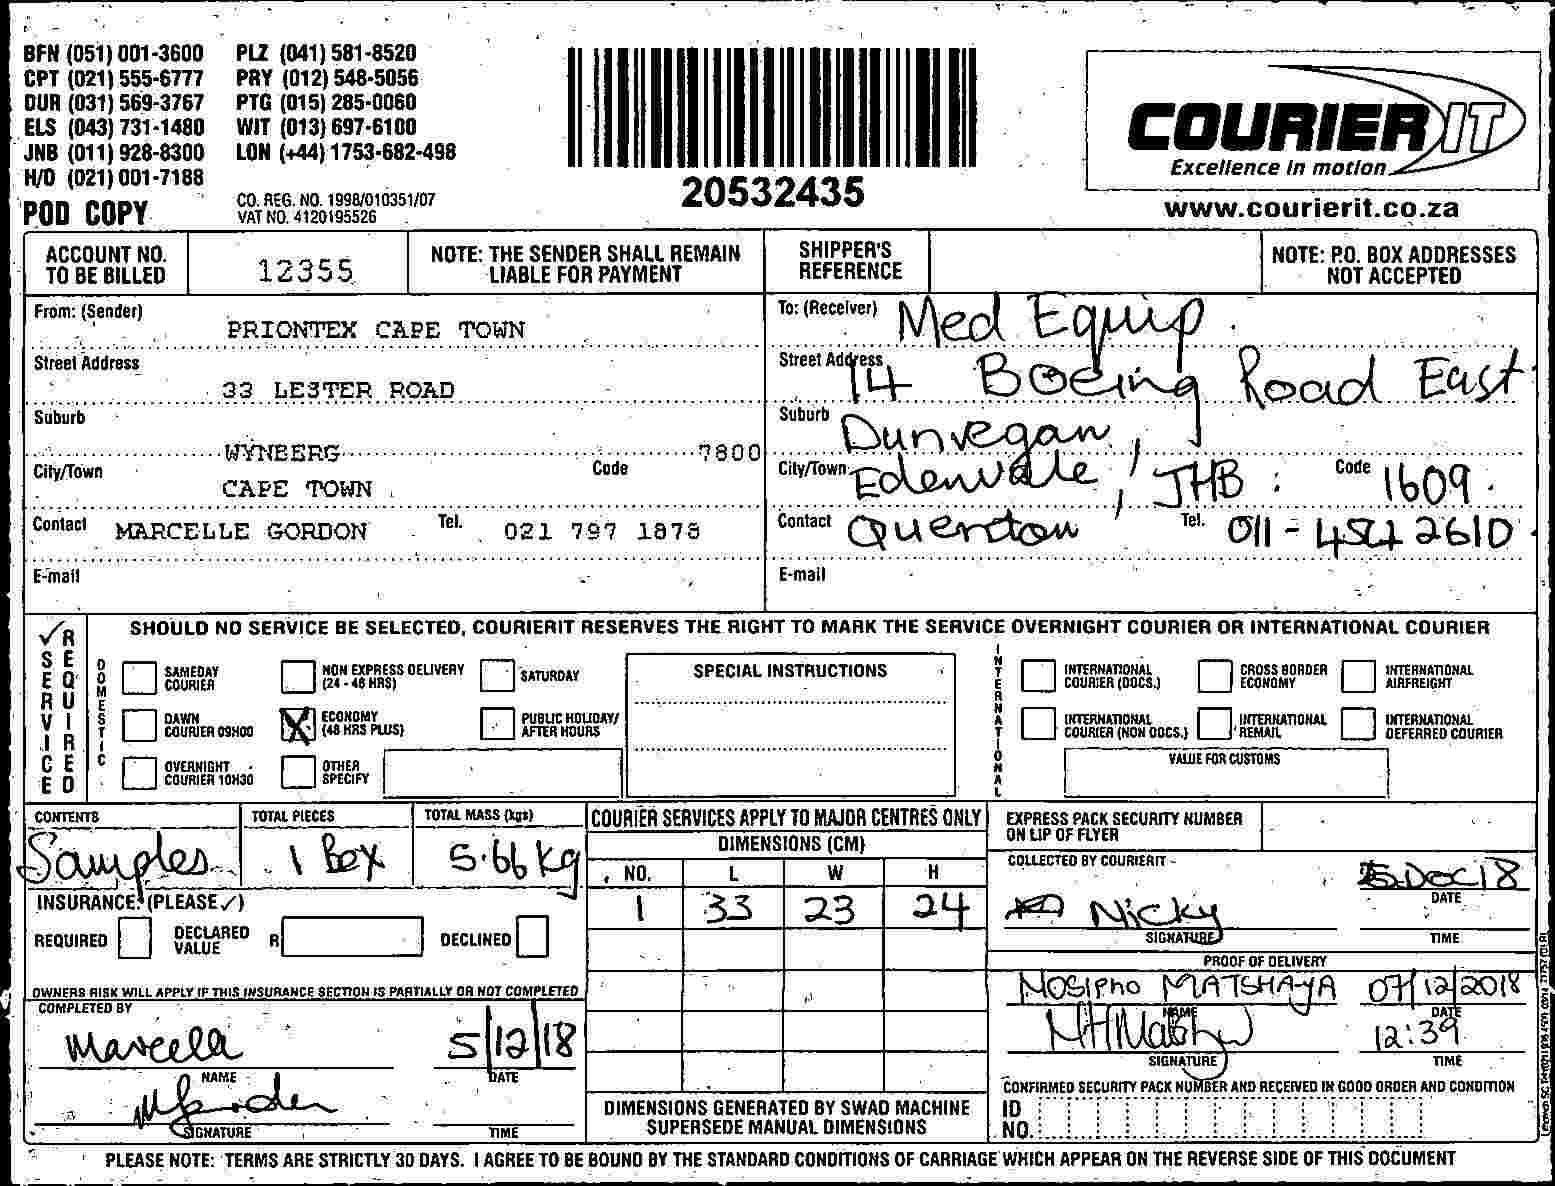 BFN (051) 001-3600 PLZ (041) 581-8520
CPT (021) 555-6777 PRY (012) 548-5056
DUR (031) 569-3767 PTG (015) 285-0060
ELS (043) 731-1480 WIT (013) 697-6100
JNB (011) 928-8300 LON (+44) 1753-682-498
H/O (021) 001-7188
POD COPY
CO. REG. NO. 1998/010351/07
VAT NO. 4120195526
20532435
COURIER IT
Excellence in motion
www.courierit.co.za
ACCOUNT NO. TO BE BILLED
12355
NOTE: THE SENDER SHALL REMAIN LIABLE FOR PAYMENT
SHIPPER'S REFERENCE
NOTE: P.O. BOX ADDRESSES NOT ACCEPTED
From: (Sender)
PRIONTEX CAPE TOWN
Street Address
33 LESTER ROAD
Suburb
WYNBERG 7800
City/Town Code
CAPE TOWN
Contact MARCELLE GORDON Tel. 021 797 1878
E-mail
To: (Receiver) Med Equip
Street Address 14 Boeing Road East
Suburb Dunvegan,
City/Town Edenvale, JHB Code 1609
Contact Tel. 011-454 2610
E-mail
SERVICE REQUIRED
SHOULD NO SERVICE BE SELECTED, COURIERIT RESERVES THE RIGHT TO MARK THE SERVICE OVERNIGHT COURIER OR INTERNATIONAL COURIER
DOMESTIC
SAMEDAY COURIER
NON EXPRESS DELIVERY (24 - 48 HRS)
SATURDAY
DAWN COURIER 09H00
X ECONOMY (48 HRS PLUS)
PUBLIC HOLIDAY/ AFTER HOURS
OVERNIGHT COURIER 10H30
OTHER SPECIFY
SPECIAL INSTRUCTIONS
INTERNATIONAL
INTERNATIONAL COURIER (DOCS.)
CROSS BORDER ECONOMY
INTERNATIONAL AIRFREIGHT
INTERNATIONAL COURIER (NON DOCS.)
INTERNATIONAL REMAIL
INTERNATIONAL DEFERRED COURIER
VALUE FOR CUSTOMS
CONTENTS TOTAL PIECES TOTAL MASS (kgs)
Samples 1 Box 5.66 kg
INSURANCE: (PLEASE ✓)
REQUIRED DECLARED VALUE R DECLINED
OWNERS RISK WILL APPLY IF THIS INSURANCE SECTION IS PARTIALLY OR NOT COMPLETED
COMPLETED BY
Marcella 5/12/18
NAME DATE
SIGNATURE TIME
COURIER SERVICES APPLY TO MAJOR CENTRES ONLY
DIMENSIONS (CM)
NO. L W H
1 33 23 24
DIMENSIONS GENERATED BY SWAD MACHINE
SUPERSEDE MANUAL DIMENSIONS
EXPRESS PACK SECURITY NUMBER ON LIP OF FLYER
COLLECTED BY COURIERIT
5 Dec 18
DATE
Nicky
SIGNATURE TIME
PROOF OF DELIVERY
NOSIPHO MATSHAYA 07/12/2018
NAME DATE
12:39
SIGNATURE TIME
CONFIRMED SECURITY PACK NUMBER AND RECEIVED IN GOOD ORDER AND CONDITION
ID NO.
PLEASE NOTE: TERMS ARE STRICTLY 30 DAYS. I AGREE TO BE BOUND BY THE STANDARD CONDITIONS OF CARRIAGE WHICH APPEAR ON THE REVERSE SIDE OF THIS DOCUMENT